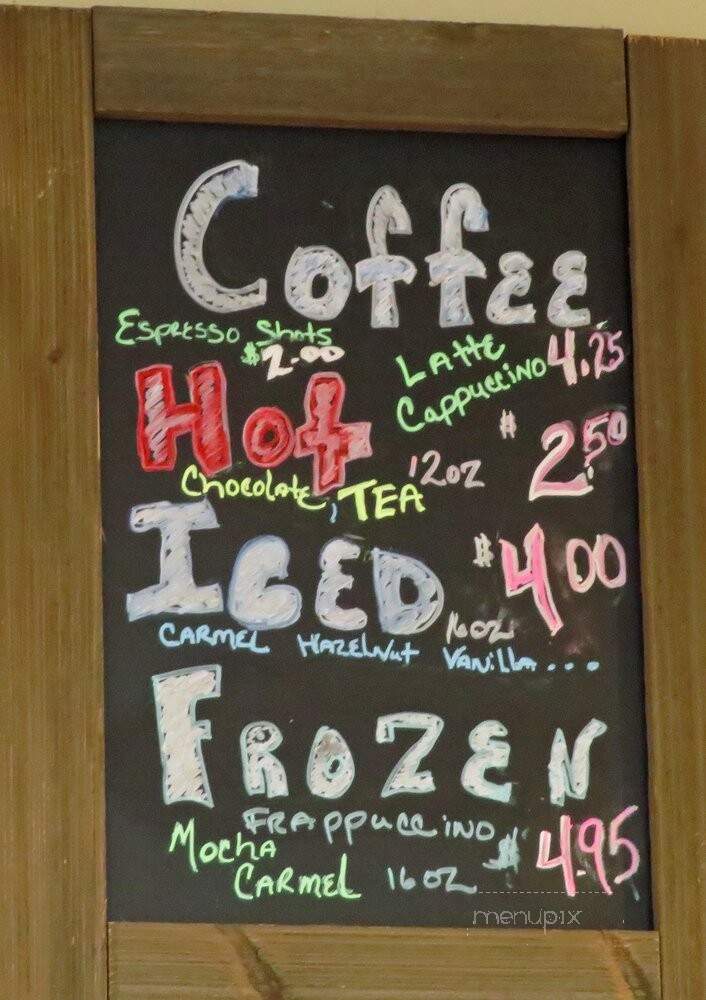 Coffee
Espresso Shots
$2.00
Latte
Cappuccino 4.25
Hot 12oz $2.50
Chocolate, TEA
ICED 16oz $4.00
CARMEL HAZELNUT VANILLA...
FROZEN
FRAPPUCCINO
Mocha
CARMEL 16oz $4.95
menupix